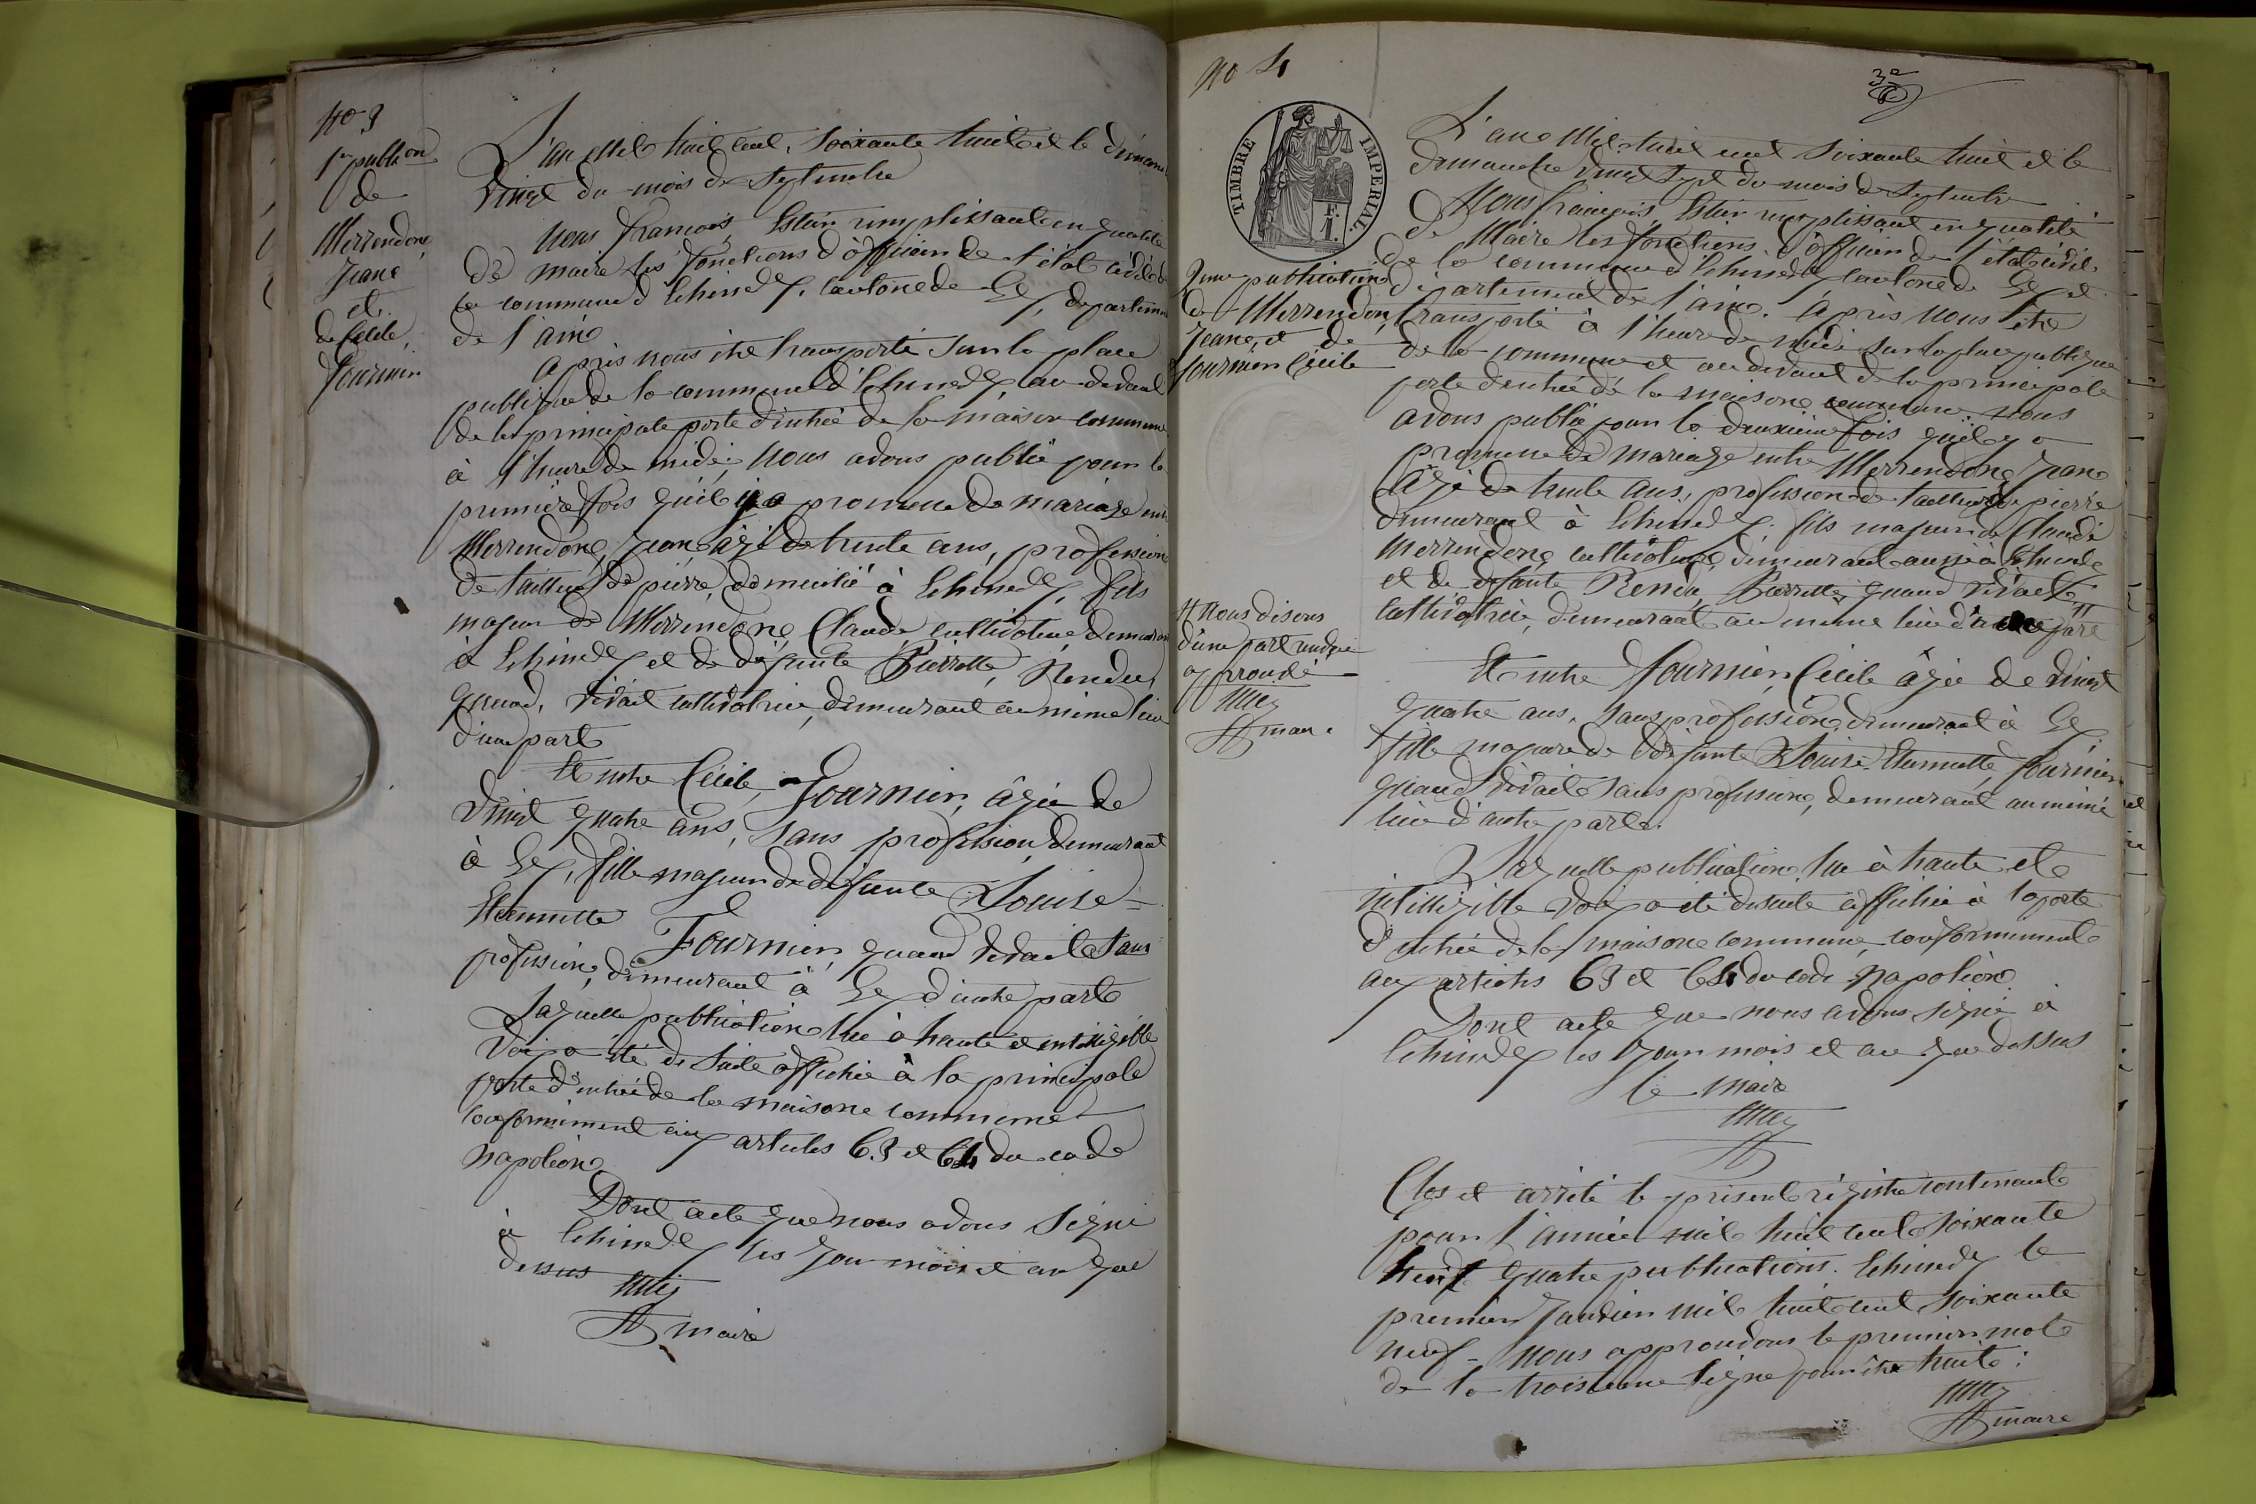 No 3
1re publ on
de
Merrendon,
Jean
et
de Cécile,
Fournier
L'an Mil huit cent, soixante huit et le dimanc
vingt du mois de Septembre
Nous françois, remplissant en qualité
de maire les fonctions d'officier de l'état civil de
la commune d'Echenevex, Canton de Gex, départem
de l'ain
après nous être transporté sur la place
publique de la commune d'Echenevex au devant
de la principale porte d'entrée de la maison commune
à l'heure de midi, nous avons publié pour la
première fois qu'il y a promesse de mariage entre
Merrendon, Jean âgé de trente ans, profession
de tailleur de pierre, domicilié à Echenevex, fils
majeur de Merrendon, Claude cultivateur, demeuran
à Echenevex et de défunte Pierrette, Rendu,
quand, vivait cultivatrice, demeurant au même lieu
d'une part
Et entre Cécile, Fournier, âgée de
vingt quatre ans, sans profession, demeurant
à Gex, fille majeur de défunte Louise-
Etiennette Fournier, quand vivait sans
profession, demeurant à Gex d'autre part
Laquelle publication lue à haute et intelligible
voix a été de suite affichée à la principale
porte d'entrée de la maison commune
conformément aux articles 63 et 64 du code
napoléon
Dont acte que nous avons signé
à Echenevex les jour mois et an que
dessus
maire
No 4
3e
TIMBRE IMPÉRIAL
2me publication
de Merrendon,
Jean, et de
Fournier Cécile
L'an Mil huit cent soixante huit et le
dimanche vingt sept du mois de Septembre
Nous françois, remplissant en qualité
de Maire les fonctions d'officier de l'état civil
de la commune d'Echenevex canton de Gex et
département de l'ain. Après nous être
transporté à l'heure de midi sur la place publique
de la commune et au devant de la principale
porte d'entrée de la maison commune. nous
avons publié pour la deuxième fois qu'il y a
promesse de mariage entre Merrendon, Jean
âgé de trente ans, profession de tailleur de pierre
demeurant à Echenevex, fils majeur de Claude
Merrendon, cultivateur, demeurant aussi à Echenevex
et de défunte Rendu, Pierrette, quand vivait
cultivatrice, demeurant au même lieu part
# nous disons
d'une part
approuvé
maire
Et entre Fournier, Cécile âgée de vingt
quatre ans, sans profession, demeurant à Gex
fille majeure de défunte Louise Etiennette Fournier
quand vivait sans profession, demeurant au même
lieu d'autre part.
Laquelle publication lue à haute et
intelligible voix a été de suite affichée à la porte
d'entrée de la maison commune, conformément
aux articles 63 et 64 du code Napoléon
Dont acte que nous avons signé à
Echenevex les jour mois et an que dessus
le maire
Clos et arrêté le présent régistre contenant
pour l'année mil huit cent soixante
huit quatre publications. Echenevex le
premier Janvier mil huit cent soixante
neuf - nous approuvons le premier mot
de la troisième ligne pour être huit:
maire